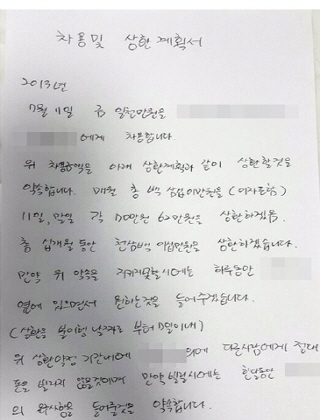 차용및 상환 계획서
2013년
7월 11일 금 일천만원을
에게 차용합니다
위 차용금액을 아래 상환계획과 같이 상환할것을
약속합니다. 매월 총 백 삼십이만원을 (이자포함)
11일, 말일 각 70만원 62만원을 상환하겠음.
총 십개월 동안 천삼백 이십만원을 상환하겠습니다.
만약 위 약속을 지키지못할시에는 하루동안
옆에 있으면서 원하는것을 들어주겠습니다.
(상환을 불이행 날짜로 부터 7일이내)
위 상환약정 기간내에 외에 다른사람에게 절대
돈을 빌리지 않을것이며 만약 발생시에는 한달동안
의 요구사항을 들어줄것을 약속합니다.